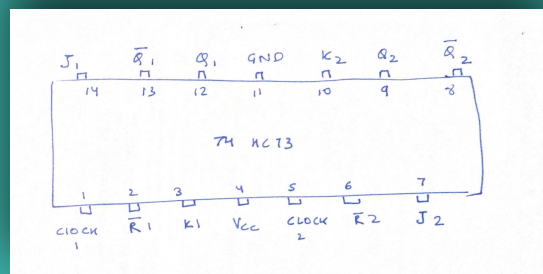 J1 Q̅1 Q1 GND K2 Q2 Q̅2
14 13 12 11 10 9 8
74 HC73
1 2 3 4 5 6 7
CLOCK 1 R̅1 K1 Vcc CLOCK 2 R̅2 J2